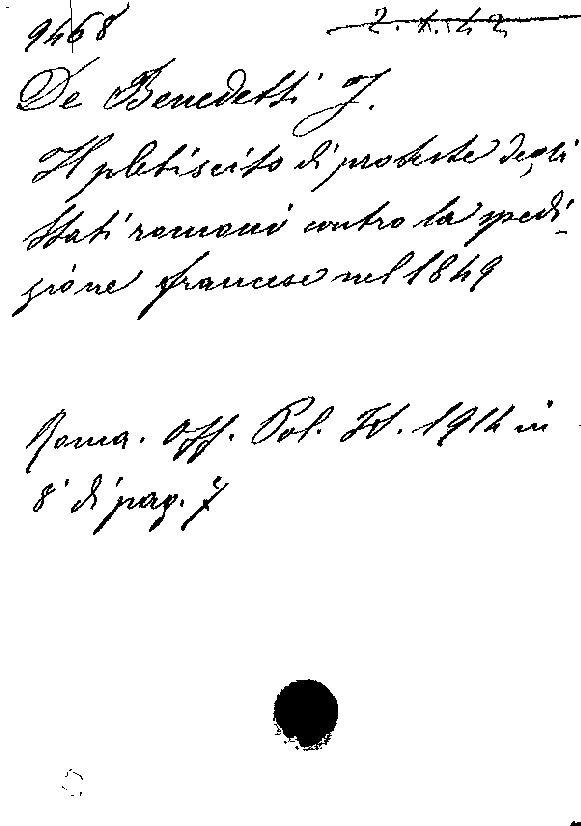 9468 2.X.42
De Benedetti J.
Il plebiscito di proteste degli
Stati romani contro la spedi-
zione francese nel 1849
Roma. Off. Pol. It. 1914 in
8° di pag. 7